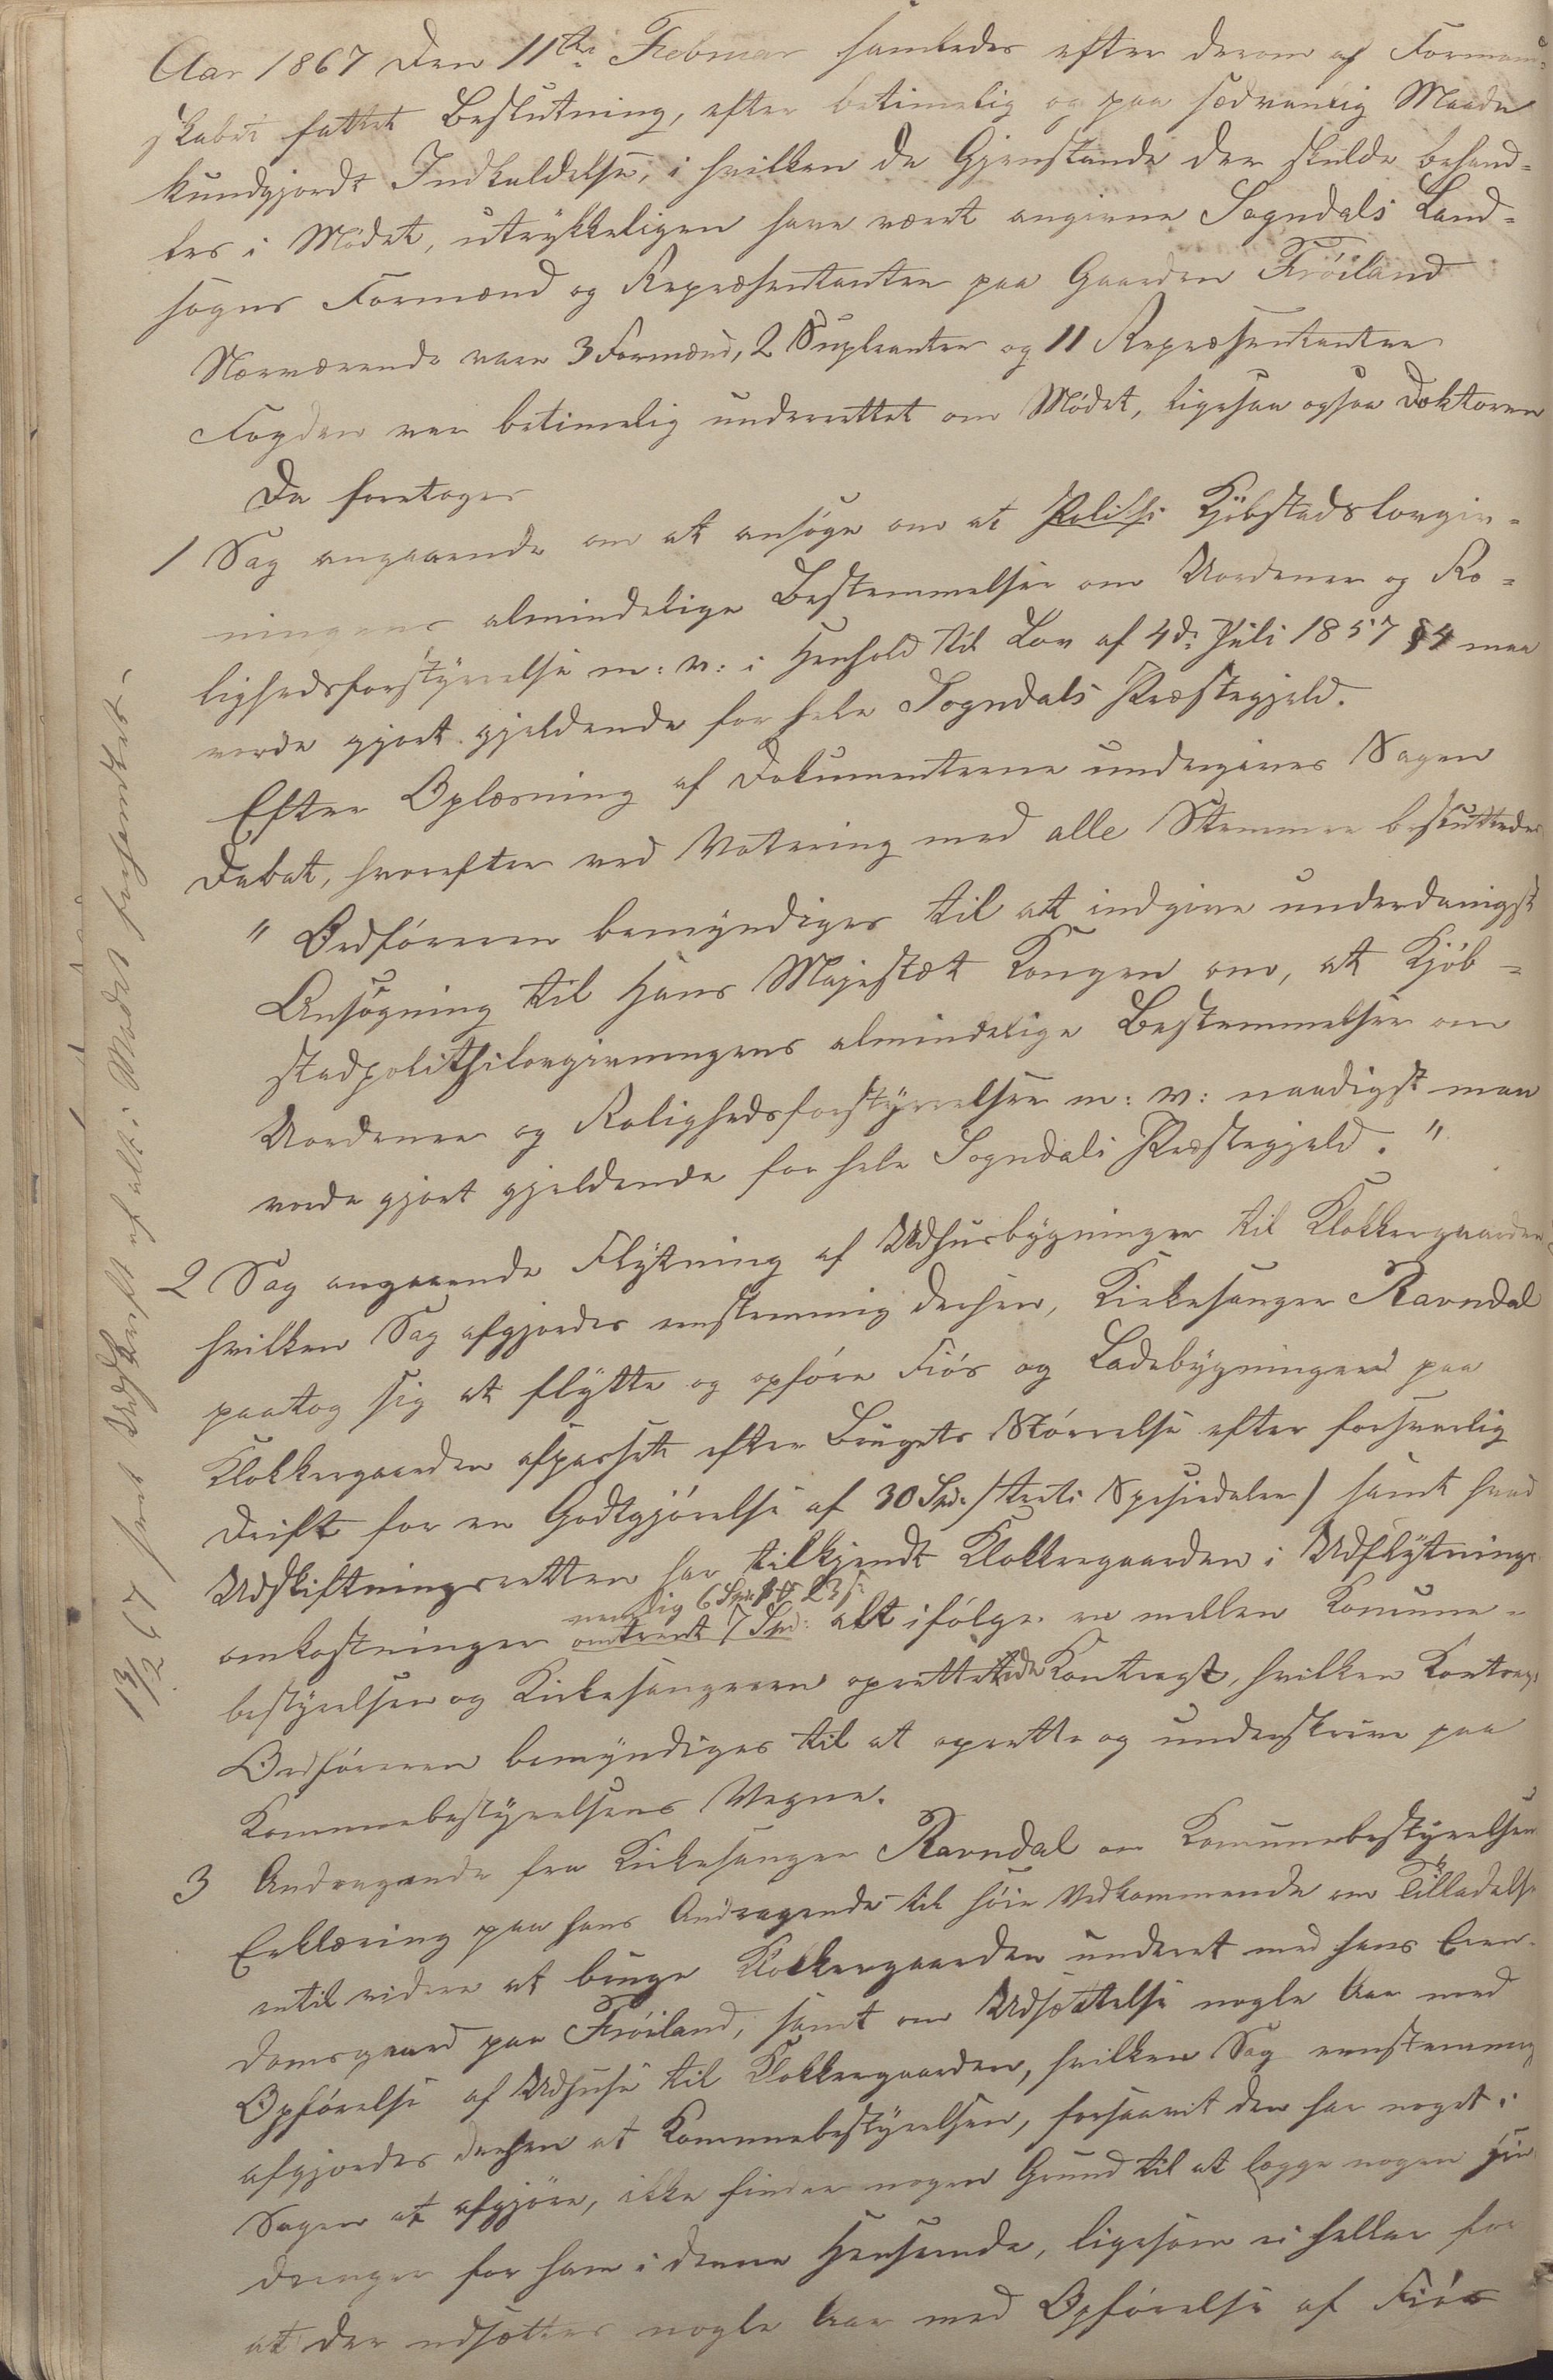 Aar 1867 den 11te Februar samledes efter derom af Formand-
skabet fattet Beslutning, efter betimelig og paa sædvanlig Maade
kundgjordt Indkaldelse, i hvilken de Gjenstande der skulde behand-
les i Mödet, utrykkeligen have været angivne Sogndals Land-
sogns Formænd og Repræsentanter paa Gaarden Fröiland
Nærværende vare 3 Formænd, 2 Supleanter og 11 Repræsentanter
Fogden var betimelig underrettet om Mödet, ligesaa ogsaa Doktoren
Da foretoges
1 Sag angaaende om at ansöge om at Politi Kjöbstadslovgiv-
ningens almindelige Bestemmelser om Uordener og Ro-
lighedsforstyrrelse m: v: i Henhold til Lov af 4d: Juli 1857 §4 maa
vorde gjort gjeldende for hele Sogndals Præstegjeld.
Efter Oplæsning af Dokumenterne undergives Sagen
Debat, hvorefter ved Votering med alle Stemmer besluttedes
" Ordföreren bemyndiges til at indgive underdanigst
Ansögning til Hans Majestæt Kongen om, at Kjöb-
stadpolitilovgivningens almindelige Bestemmelser om
Uordener og Rolighedsforstyrrelser m: v: naadigst maa
vorde gjort gjeldende for hele Sogndals Præstegjeld. "
2 Sag angaaende Flytning af Udhusbygninger til Klokkergaarden
hvilken Sag afgjordes enstemmig derhen, Kirkesanger Ravndal
paatog sig at flytte og opföre Fiös og Ladebygninger paa
Klokkergaarden afpasset efter Brugets Störrelse efter forsvarlig
Drift for en Godtgjörelse af 30 Spd: /: treti Spesiedaler / samt hvad
Udskiftningsretten har tilkjendt Klokkergaarden i Udflytnings-
nemlig 6 Spd: 23 s:
omkostninger omtrent 7 Spd: alt ifölge en mellem Komune-
bestyrelsen og Kirkesangeren oprettende Kontragt, hvilken Kontragt
Ordföreren bemyndiges til at oprette og underskrive paa
Kommunebestyrelsens Vegne.
3 Andragende fra Kirkesanger Ravndal om Komunebestyrelsens
Erklæring paa hans Andragende til höie Vedkommende om Tilladelse
indtil videre at bruge Klokkergaarden underet med hans Eien-
domsgaard paa Fröiland, samt om Udsættelse nogle Aar med
Opförelse af Udhuse til Klokkergaarden, hvilken Sag enstemmig
afgjordes derhen at Kommunebestyrelsen, forsaavit den har noget i
Sagen at afgjöre, ikke finder nogen Grund til at lægge nogen Hin-
dringer for ham i denne Henseende, ligesom ei heller for
at der udsættes nogle Aar med Opförelse af Fiös
13/2 67 sendt Udskrift af alt i Mödet forhandlet.